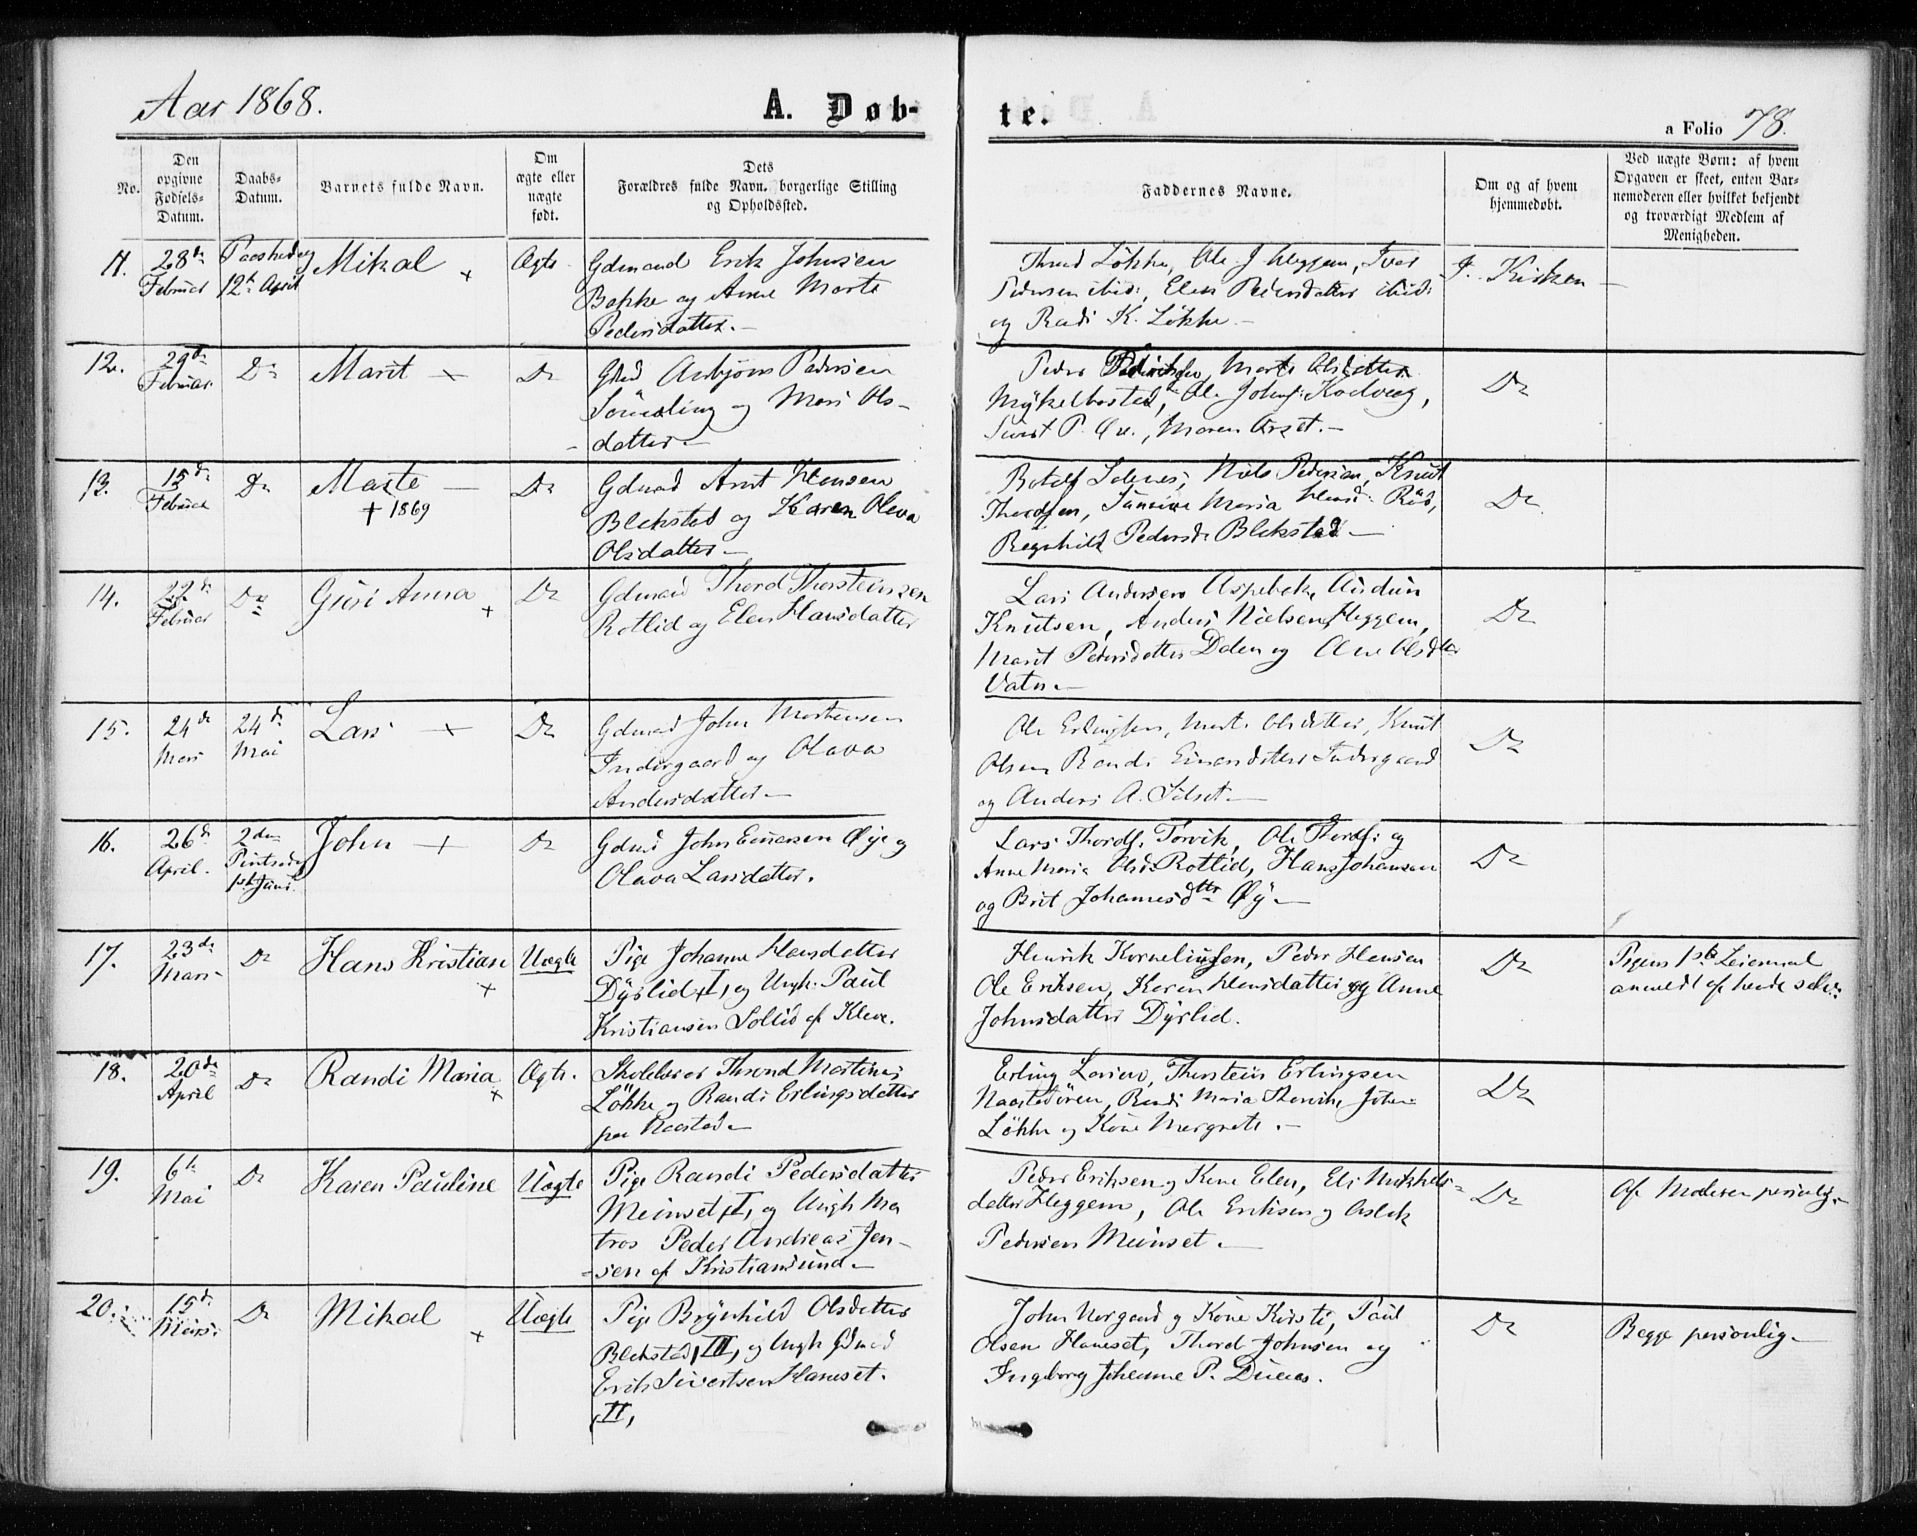 Aar 1868.
A. Døb-
te.
a Folio 78.
No.
Den opgivne Fødsels-Datum.
Daabs-Datum.
Barnets fulde Navn.
Om ægte eller uægte født.
Dets Forældres fulde Navn, borgerlige Stilling og Opholdssted.
Faddernes Navne.
Om og af hvem hjemmedøbt.
Ved uægte Børn: af hvem Opgaven er skeet, enten Barnemoderen eller hvilket betjendt og troværdigt Medlem af Menigheden.
11. 28de Februar
12te April
Mikal +
Ægte
Gdmand Erik Johnsen
Bakke og Anne Marte
Pedersdatter.-
Løkke, Ole J. Heggem, Iver
Pedersen ibid:, Elen Pedersdatter ibid:
og Randi K. Løkke.-
I Kirken -
12. 29de Februar
Do
Marit +
Do
Asbjørn Pedersen
og Mari Ols-
datter.-
Peder Marte Olsdatter
Ole Johnsen
Sivert P. Øie, Maren Arset.-
Do
13. 15de Februar
Do
Marte -
+ 1869
Do
Gdmad Arnt Hansen
Blekstad og Karen Olava
Olsdatter -
Solenes, Niels Pedersen, Knut
Thordsen, Maria Hansd:
Ragnhild Pedersd: Blekstad -
Do
14. 22de Februar
Do
Guri Anna +
Do
Gdmand Thord Thorsteinsen
Rotlid og Elen Hansdatter
Lars Andersen Aspebek, Audun
Knutsen, Anders Nielsen Heggem,
Marit Pedersdatter Dalen og Ane Olsdtr
Vatn.-
Do
15. 24de Mars
24de Mai
Lars +
Do
Gdmad John Mortensen
Indergaard og Olava
Andersdatter -
Ole Erlingsen, Marte Olsdatter, Knut
Olsen, Randi Einarsdatter Indergaard
og Anders A. Silset.-
Do
16. 26de April.
2den Pintsedag 1ste Juni
John +
Do
Gdmd John Einarsen Øye og
Olava Larsdatter.
Lars Thords: Torvik, Ole Thords: og
Anne Maria Olsd: Rotlid, Hans Johansen
og Brit Johannesdtr Øy -
Do
17. 23de Mars
Do
Hans Kristian +
Uægte
Pige Johanne Hansdatter
Dyrlid, I, og Ungk: Paul
Kristiansen Sollid af Kleve.
Henrik Korneliussen, Peder Hansen
Ole Eriksen, Karen Hansdatter og Anne
Johnsdatter Dyrlid.
Do
Pigens 1ste Leiermaal
anmeldt af hende selv.
18. 20de April
Do
Randi Maria +
Ægte.
Skolelærer Thrond Martinus
Løkke og Randi Erlingsdatter
paa Naastad -
Erling Larsen, Thorstein Erlingsen
Naastadøren, Randi Maria Thorvik, John
Løkke og Kone Margrete.-
Do
19. 6te Mai
Do
Karen Pauline
Uægte
Pige Randi Pedersdatter
Meinset, I, og Ungk Ma
tros Peder Andreas Jen-
sen af Kristiansund.-
Peder Eriksen og Kone Elen, Eli Mikkels-
datter Heggem, Ole Eriksen og Aslak
Pedersen Meinset.-
Do
Af Moderen personlig.-
20. 15de Mars
Do
Mikal +
Uægte
Pige Brynhild Olsdatter
Blekstad, III, og Ungk Gdmad
Erik Sivertsen Hanset.
II,
John Norgaard og Kone Kirsti, Paul
Olsen Hanset, Thord Johnsen og
Ingeborg Johanne P.
Do
Begge personlig.-